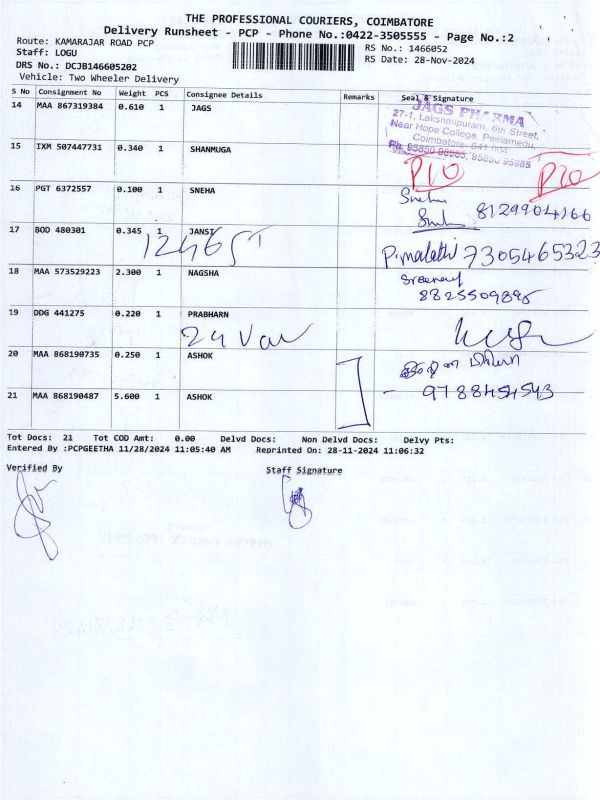 THE PROFESSIONAL COURIERS, COIMBATORE
Delivery Runsheet - PCP - Phone No.:0422-3505555 - Page No.:2
Route: KAMARAJAR ROAD PCP
RS No.: 1466052
Staff: LOGU
RS Date: 28-Nov-2024
DRS No.: DCJB146605202
Vehicle: Two Wheeler Delivery
S No Consignment No Weight PCS Consignee Details Remarks Seal & Signature
14 MAA 867319384 0.610 1 JAGS
JAGS PHARMA
27-1, Lakshmipuram, 6th Street,
Near Hope College, Peelamedu,
Coimbatore- 641 004
Ph: 95850 98985, 95850 95985
15 IXM 507447731 0.340 1 SHANMUGA
P10 P20
16 PGT 6372557 0.100 1 SNEHA
Sneha
8129904166
17 BOD 480301 0.345 1 JANSI
P.malathi 7305465323
18 MAA 573529223 2.300 1 NAGSHA
8825509895
19 DDG 441275 0.220 1 PRABHARN
20 MAA 868190735 0.250 1 ASHOK
21 MAA 868190487 5.600 1 ASHOK
- 9788454543
Tot Docs: 21 Tot COD Amt: 0.00 Delvd Docs: Non Delvd Docs: Delvy Pts:
Entered By :PCPGEETHA 11/28/2024 11:05:40 AM Reprinted On: 28-11-2024 11:06:32
Verified By Staff Signature